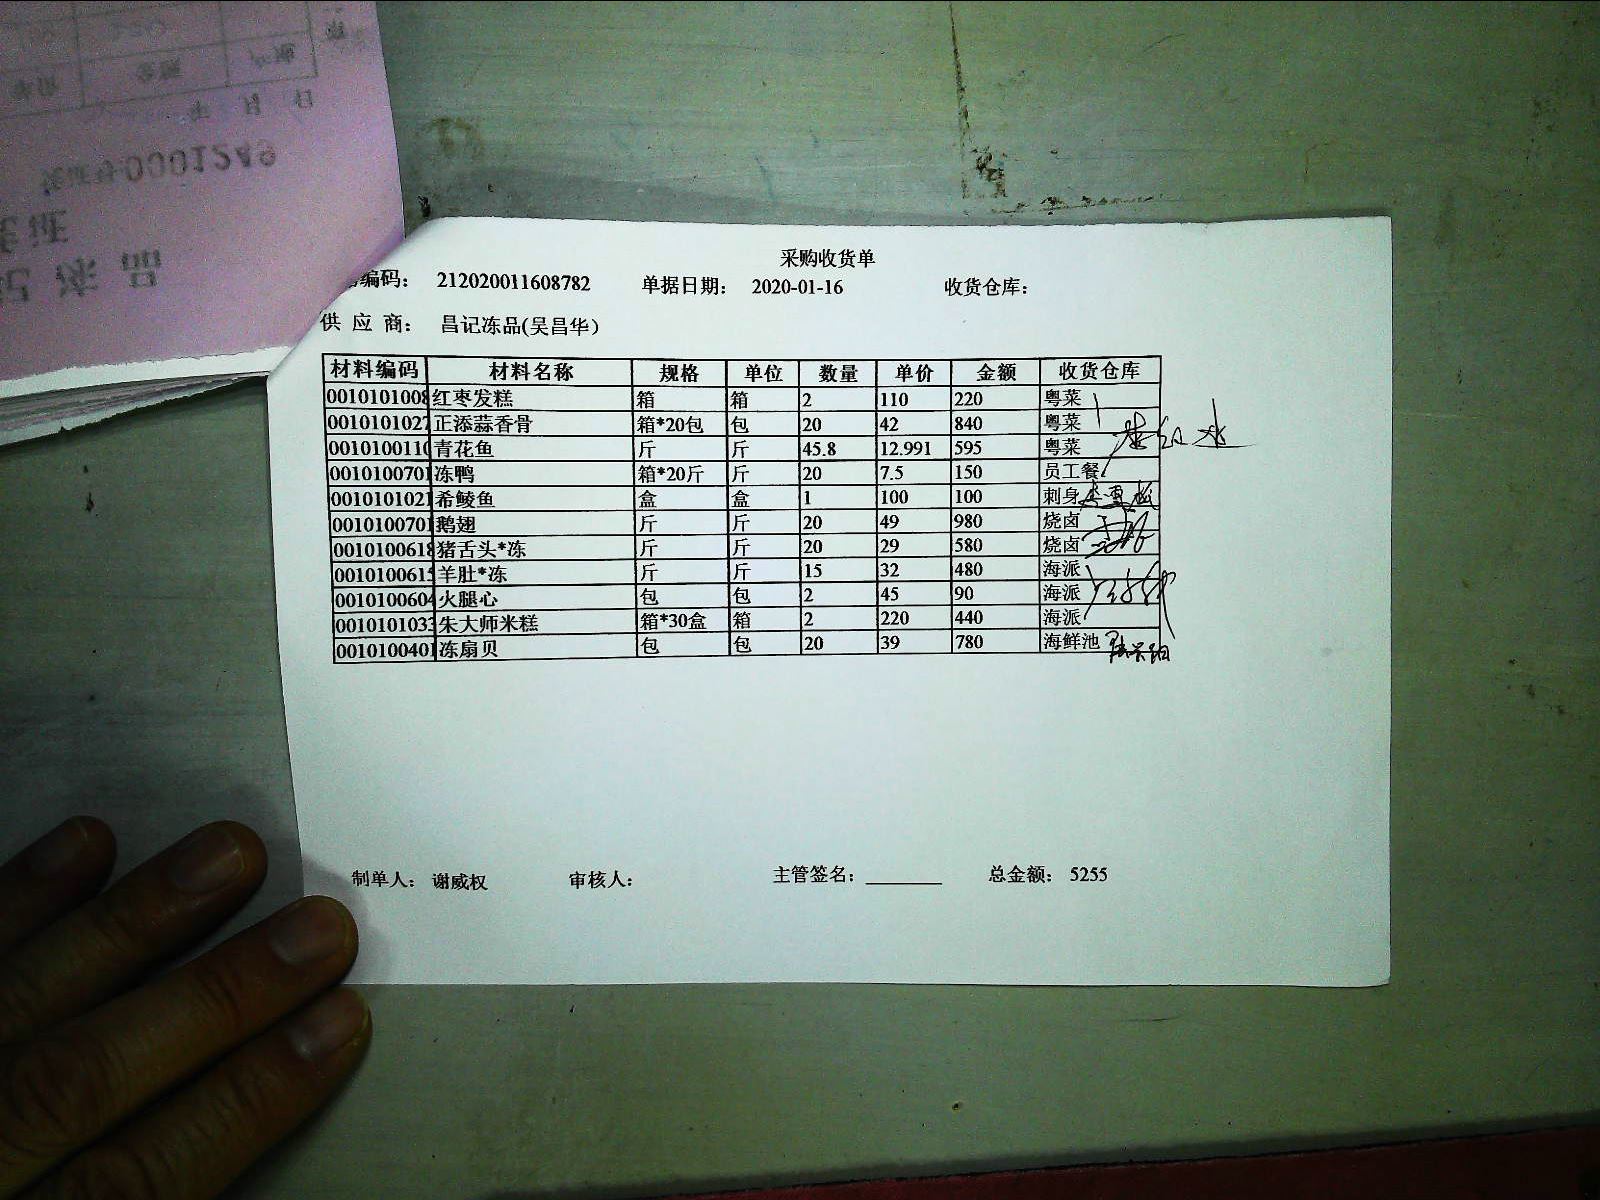 0001249
采购收货单
编码： 212020011608782 单据日期： 2020-01-16 收货仓库：
供 应 商： 昌记冻品(吴昌华)
材料编码 材料名称 规格 单位 数量 单价 金额 收货仓库
0010101008 红枣发糕 箱 箱 2 110 220 粤菜
0010101027 正添蒜香骨 箱*20包 包 20 42 840 粤菜
0010100110 青花鱼 斤 斤 45.8 12.991 595 粤菜
0010100701 冻鸭 箱*20斤 斤 20 7.5 150 员工餐
0010101021 希鲮鱼 盒 盒 1 100 100 刺身
0010100701 鹅翅 斤 斤 20 49 980 烧卤
0010100618 猪舌头*冻 斤 斤 20 29 580 烧卤
0010100615 羊肚*冻 斤 斤 15 32 480 海派
0010100604 火腿心 包 包 2 45 90 海派
0010101033 朱大师米糕 箱*30盒 箱 2 220 440 海派
0010100401 冻扇贝 包 包 20 39 780 海鲜池
制单人： 谢威权 审核人： 主管签名： 总金额： 5255